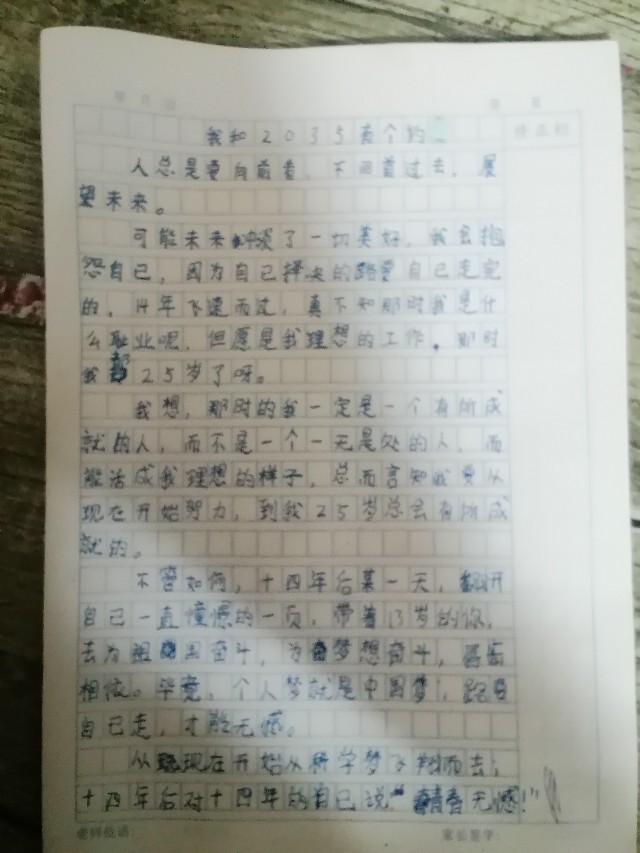 我和2035有个约
人总是要向前看，不回首过去，展
望未来。
可能未来冲淡了一切美好，我会抱
怨自己，因为自己择决的路要自己走完
的，14年飞速而过，真不知那时我是什
么耻业呢，但愿是我理想的工作。那时
我都25岁了呀。
我想，那时的我一定是一个有所成
就的人，而不是一个一无是处的人，而
能活成我理想的样子，总而言知我要从
现在开始努力，到我25岁总会有所成
就的。
不管如何，十四年后某一天，翻开
自己一直憧憬的一页，带着13岁的你，
去为祖国奋斗，为梦想奋斗，
相依。毕竟，个人梦就是中国梦，路要
自己走，才能无憾。
从现在开始从科学梦飞翔而去，
十四年后对十四年的自己说“青春无憾!”
老师的话：
家长签字：